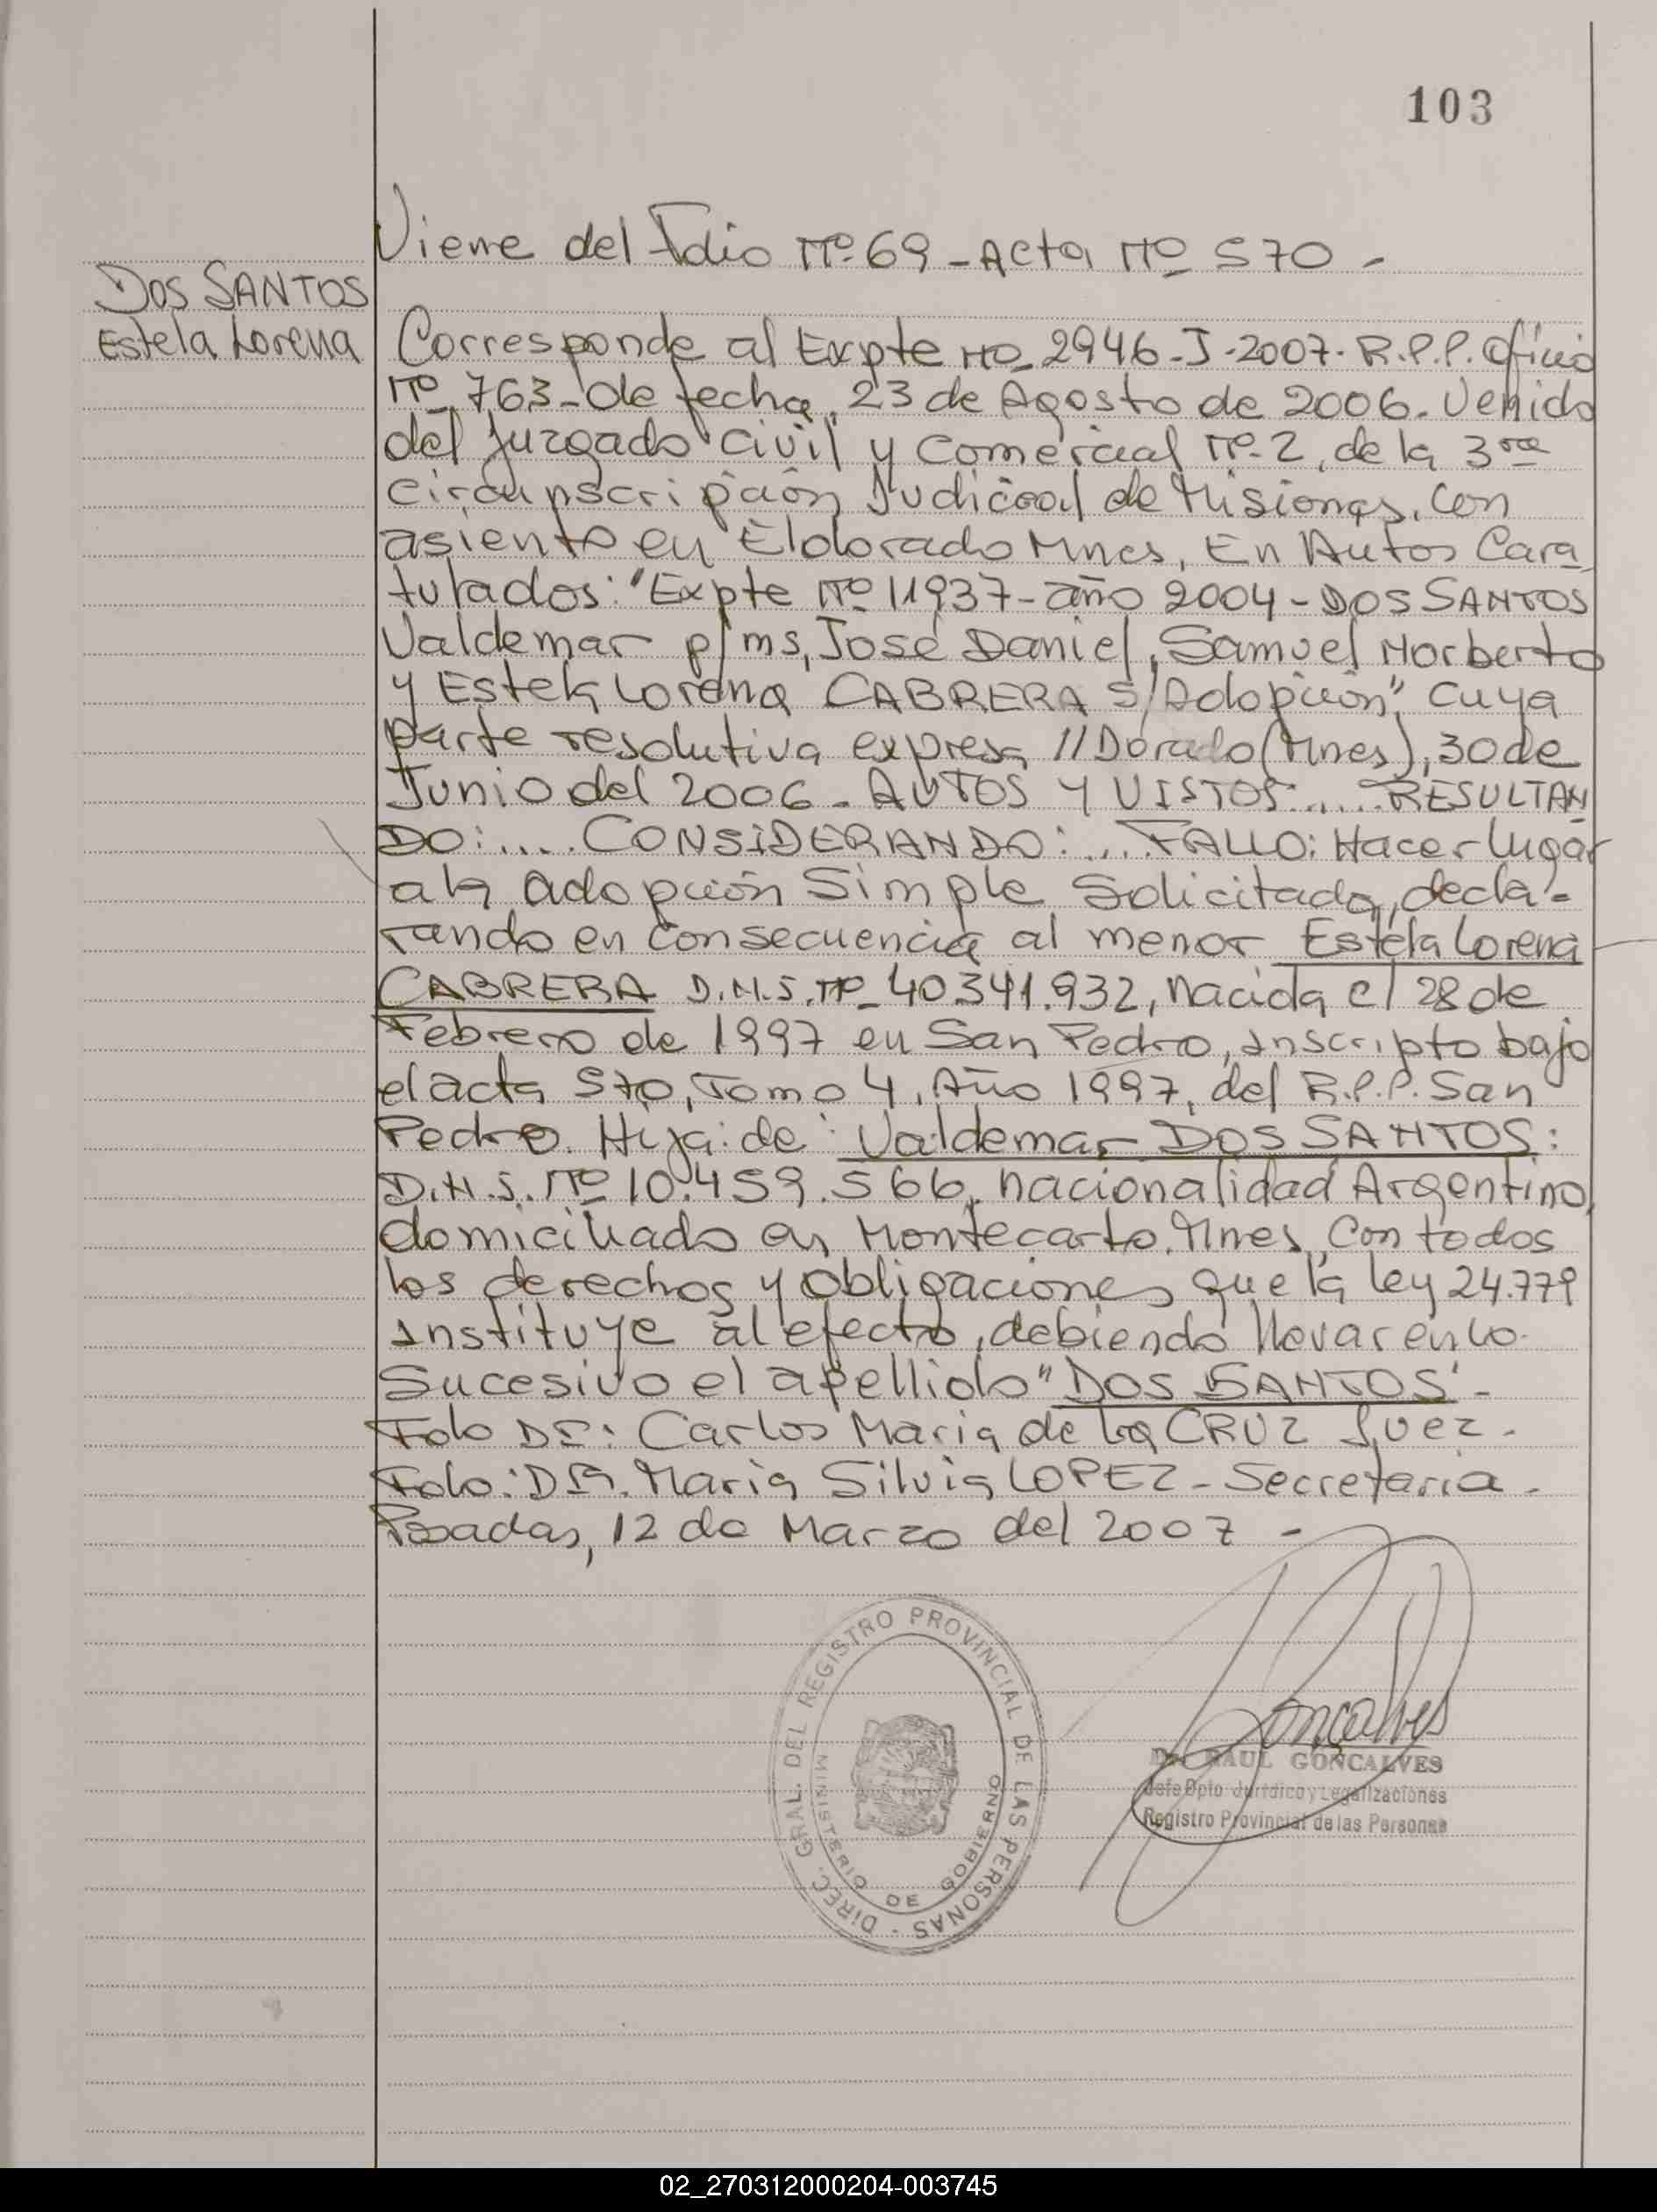 103
Viene del Folio Nº 69 - Acta Nº 570 -
DOS SANTOS
Estela Lorena
Corresponde al Expte Nº 2946-J-2007- R.P.P. Oficio
Nº 763- de fecha, 23 de Agosto de 2006. Venido
del Juzgado Civil y Comercial Nº 2, de la 3ra
Circunscripción Judicial de Misiones, con
asiento en Eldorado Mnes, En Autos Cara
tulados: "Expte Nº 11937- año 2004 - DOS SANTOS
Valdemar p/ ms, José Daniel, Samuel Norberto
y Estela Lorena CABRERA S/Adopción", cuya
parte resolutiva expresa //Dorado (Mnes), 30 de
Junio del 2006. AUTOS Y VISTOS:..... RESULTAN
DO:.... CONSIDERANDO:... FALLO: Hacer lugar
a la adopción Simple Solicitada, decla-
rando en consecuencia al menor Estela Lorena
CABRERA D.N.I. Nº 40.341.932, nacida el 28 de
Febrero de 1997 en San Pedro, Inscripto bajo
el acta 570, Tomo 4, Año 1997, del R.P.P. San
Pedro. Hija de: Valdemar DOS SANTOS:
D.N.I. Nº 10.459.566, nacionalidad Argentino,
domiciliado en Montecarlo. Mnes, Con todos
los derechos y obligaciones que la ley 24.779
Instituye al efecto, debiendo llevar en lo
Sucesivo el apellido "DOS SANTOS" -
Fdo DR: Carlos Maria de la CRUZ Juez -
Fdo: DRA. Maria Silvia LOPEZ - Secretaria -
Posadas, 12 de Marzo del 2007 -
DIREC. GRAL. DEL REGISTRO PROVINCIAL DE LAS PERSONAS -
MINISTERIO DE GOBIERNO
Goncalves
Dr. RAUL GONCALVES
Jefe Dpto. Jurídico y Legalizaciones
Registro Provincial de las Personas
02_270312000204-003745